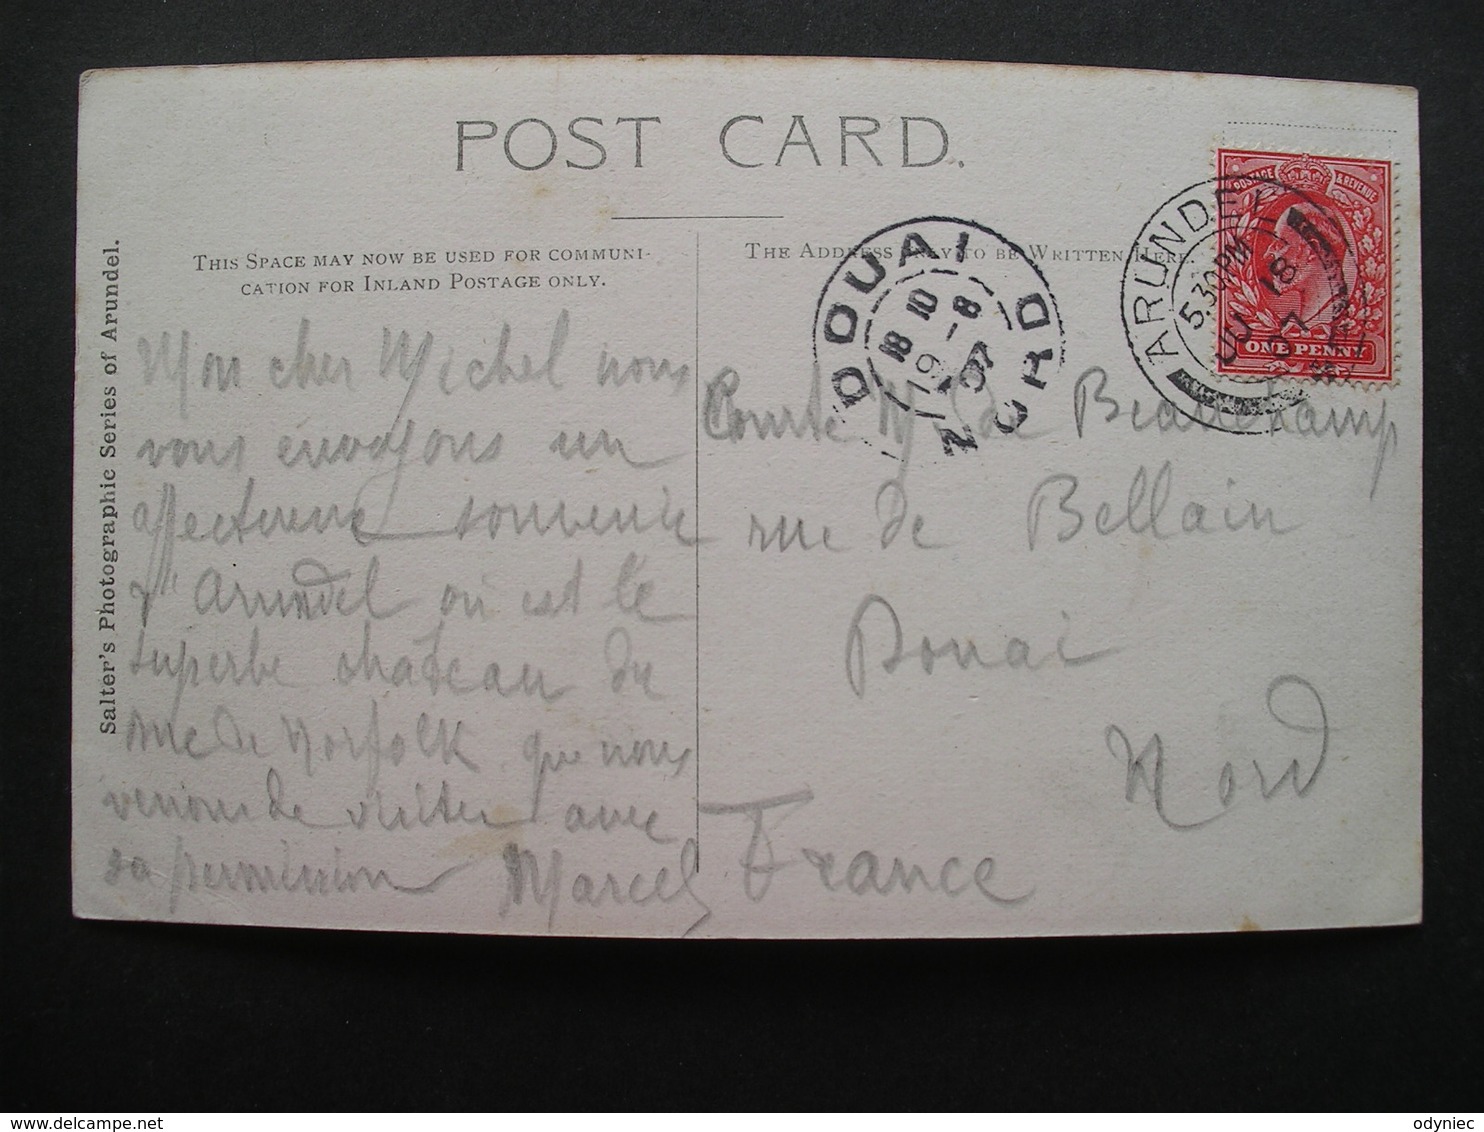 POST CARD.
THIS SPACE MAY NOW BE USED FOR COMMUNI-
CATION FOR INLAND POSTAGE ONLY.
THE ADDRESS ONLY TO BE WRITTEN HERE.
Salter's Photographic Series of Arundel.
Mon cher Michel nous
vous envoyons un
affectueux souvenir
d'Arundel où est le
superbe château du
duc de Norfolk que nous
venions de visiter avec
sa permission Marcel
Comte M. de Beauchamp
rue de Bellain
Douai
Nord
France
POSTAGE & REVENUE
ONE PENNY
ARUNDEL
5.30 PM
JU 18
07
DOUAI
18 10
19 - 8
07
NORD
odyniec